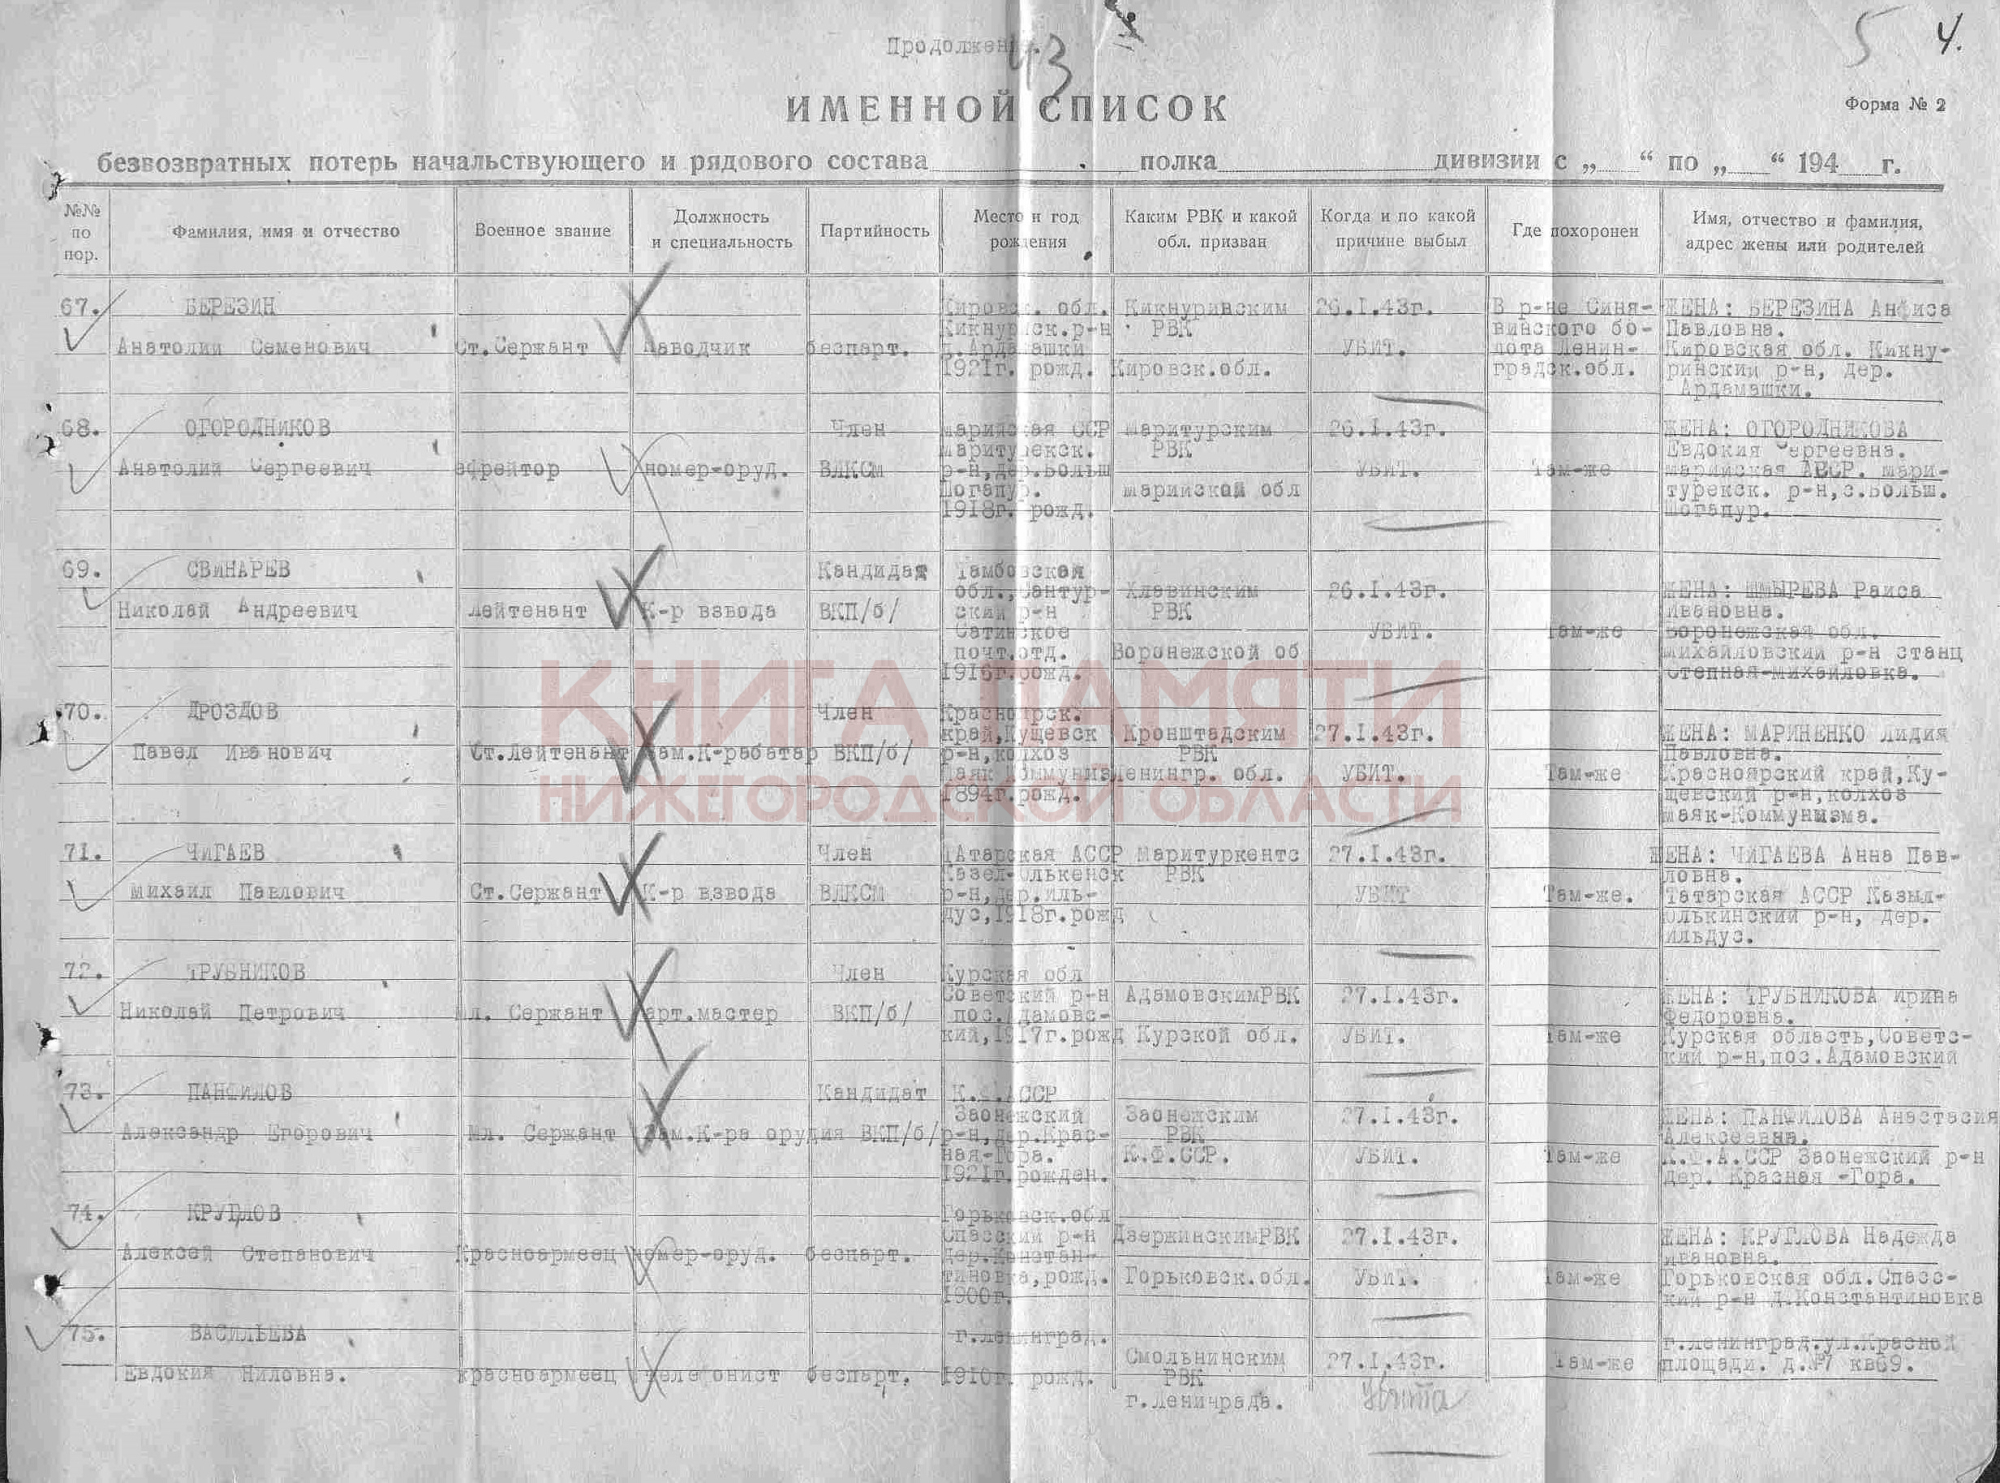 Продолжение.
43
5 4.
ИМЕННОЙ СПИСОК
Форма № 2
безвозвратных потерь начальствующего и рядового состава полка дивизии с „ “ по „ “ 194 г.
№№ по пор.
Фамилия, имя и отчество
Военное звание
Должность и специальность
Партийность
Место и год рождения
Каким РВК и какой обл. призван
Когда и по какой причине выбыл
Где похоронен
Имя, отчество и фамилия, адрес жены или родителей
67. БЕРЕЗИН Кировск. обл. Кикнуринским 26.I.43г. В р-не Синя- ЖЕНА: БЕРЕЗИНА Анфиса
Кикнурск.р-н РВК винского бо- Павловна.
Анатолий Семенович Ст.Сержант Наводчик беспарт. д.Ардамашки УБИТ. лота Ленин- Кировская обл. Кикну-
1921г. рожд. Кировск.обл. градск.обл. ринский р-н, дер.
Ардамашки.
68. ОГОРОДНИКОВ Член Марийская ССР Маритурским 26.I.43г. ЖЕНА: ОГОРОДНИКОВА
Маритурекск. РВК Евдокия Сергеевна.
Анатолий Сергеевич ефрейтор номер-оруд. ВЛКСМ р-н,дер.Больш УБИТ. Там-же Марийская АССР. Мари-
Шогапур. Марийской обл турекск. р-н,с.Больш.
1918г. рожд. Шогапур.
69. СВИНАРЕВ Кандидат Тамбовская
обл., Хлавинским 26.I.43г. ЖЕНА: ШМЫРЕВА Раиса
Николай Андреевич Лейтенант К-р взвода ВКП/б/ ский р-н РВК Ивановна.
Сатинское УБИТ. Там-же Воронежская обл.
почт.отд. Воронежской об Михайловский р-н станц
1916г.рожд. Степная-Михайловка.
70. ДРОЗДОВ Член Красноярск.
край,Кущевск Кронштадским 27.I.43г. ЖЕНА: МАРИНЕНКО Лидия
Павел Иванович Ст.Лейтенант Зам.К-рабатар ВКП/б/ р-н,колхоз РВК Павловна.
Маяк Коммуниз Ленингр. обл. УБИТ. Там-же Красноярский край,Ку-
1894г.рожд. щевский р-н,колхоз
маяк-Коммунызма.
71. ЧИГАЕВ Член ТАтарская АССР Маритуркентс 27.I.43г. ЖЕНА: ЧИГАЕВА Анна Пав-
Казел-Юлькенск РВК ловна.
Михаил Павлович Ст.Сержант К-р взвода ВЛКСМ р-н,дер.Иль- УБИТ Там-же. Татарская АССР Казыл-
дус,1918г.рожд Юлькинский р-н, дер.
Ильдус.
72. ТРУБНИКОВ Член Курская обл
Советский р-н АдамовскимРВК 27.I.43г. ЖЕНА: ТРУБНИКОВА Ирина
Николай Петрович Мл. Сержант арт.мастер ВКП/б/ пос.Адамовс- Федоровна.
кий,1917г.рожд Курской обл. УБИТ. Там-же Курская область,Советс-
кий р-н,пос.Адамовский
73. ПАНФИЛОВ Кандидат К.Ф.АССР
Заонежский Заонежским 27.I.43г. ЖЕНА: ПАНФИЛОВА Анастасия
Александр Егорович Мл. Сержант Зам.К-ра орудия ВКП/б/ р-н,дер.Крас- РВК Алексеевна.
ная-Гора. К.Ф.ССР. УБИТ. Там-же К.Ф.А.ССР Заонежский р-н
1921г.рожден. дер. Красная -Гора.
74. КРУГЛОВ Горьковск.обл
Спасский р-н ДзержинскимРВК 27.I.43г. ЖЕНА: КРУГЛОВА Надежда
Алексей Степанович Красноармеец номер-оруд. беспарт. дер.Констан- Ивановна.
тиновка,рожд. Горьковск.обл. УБИТ. Там-же Горьковская обл.Спасс-
1900г. кий р-н д.Константиновка
75. ВАСИЛЬЕВА г.Ленинград. г.Ленинград.ул.Красной
Смольнинским 27.I.43г. Там-же площади. д.№7 кв69.
Евдокия Ниловна. красноармеец телефонист беспарт. 1910г. рожд. РВК
г.Ленинрада. Убита
КНИГА ПАМЯТИ
НИЖЕГОРОДСКОЙ ОБЛАСТИ